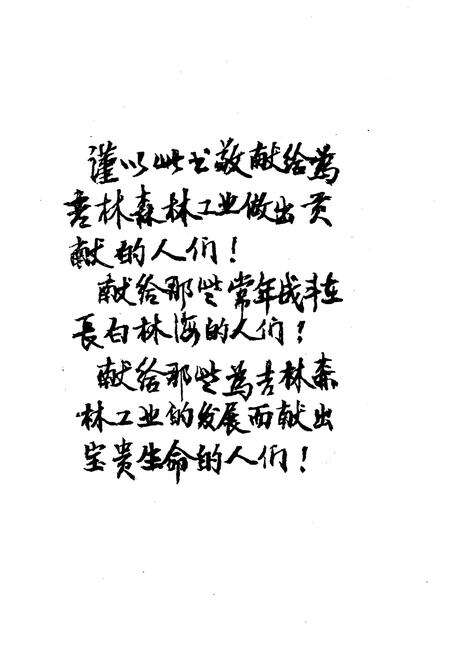 谨以此书敬献给為
吉林森林工业做出贡
献的人们!
献给那些常年战斗在
長白林海的人们!
献给那些為吉林森
林工业的发展而献出
宝贵生命的人们!